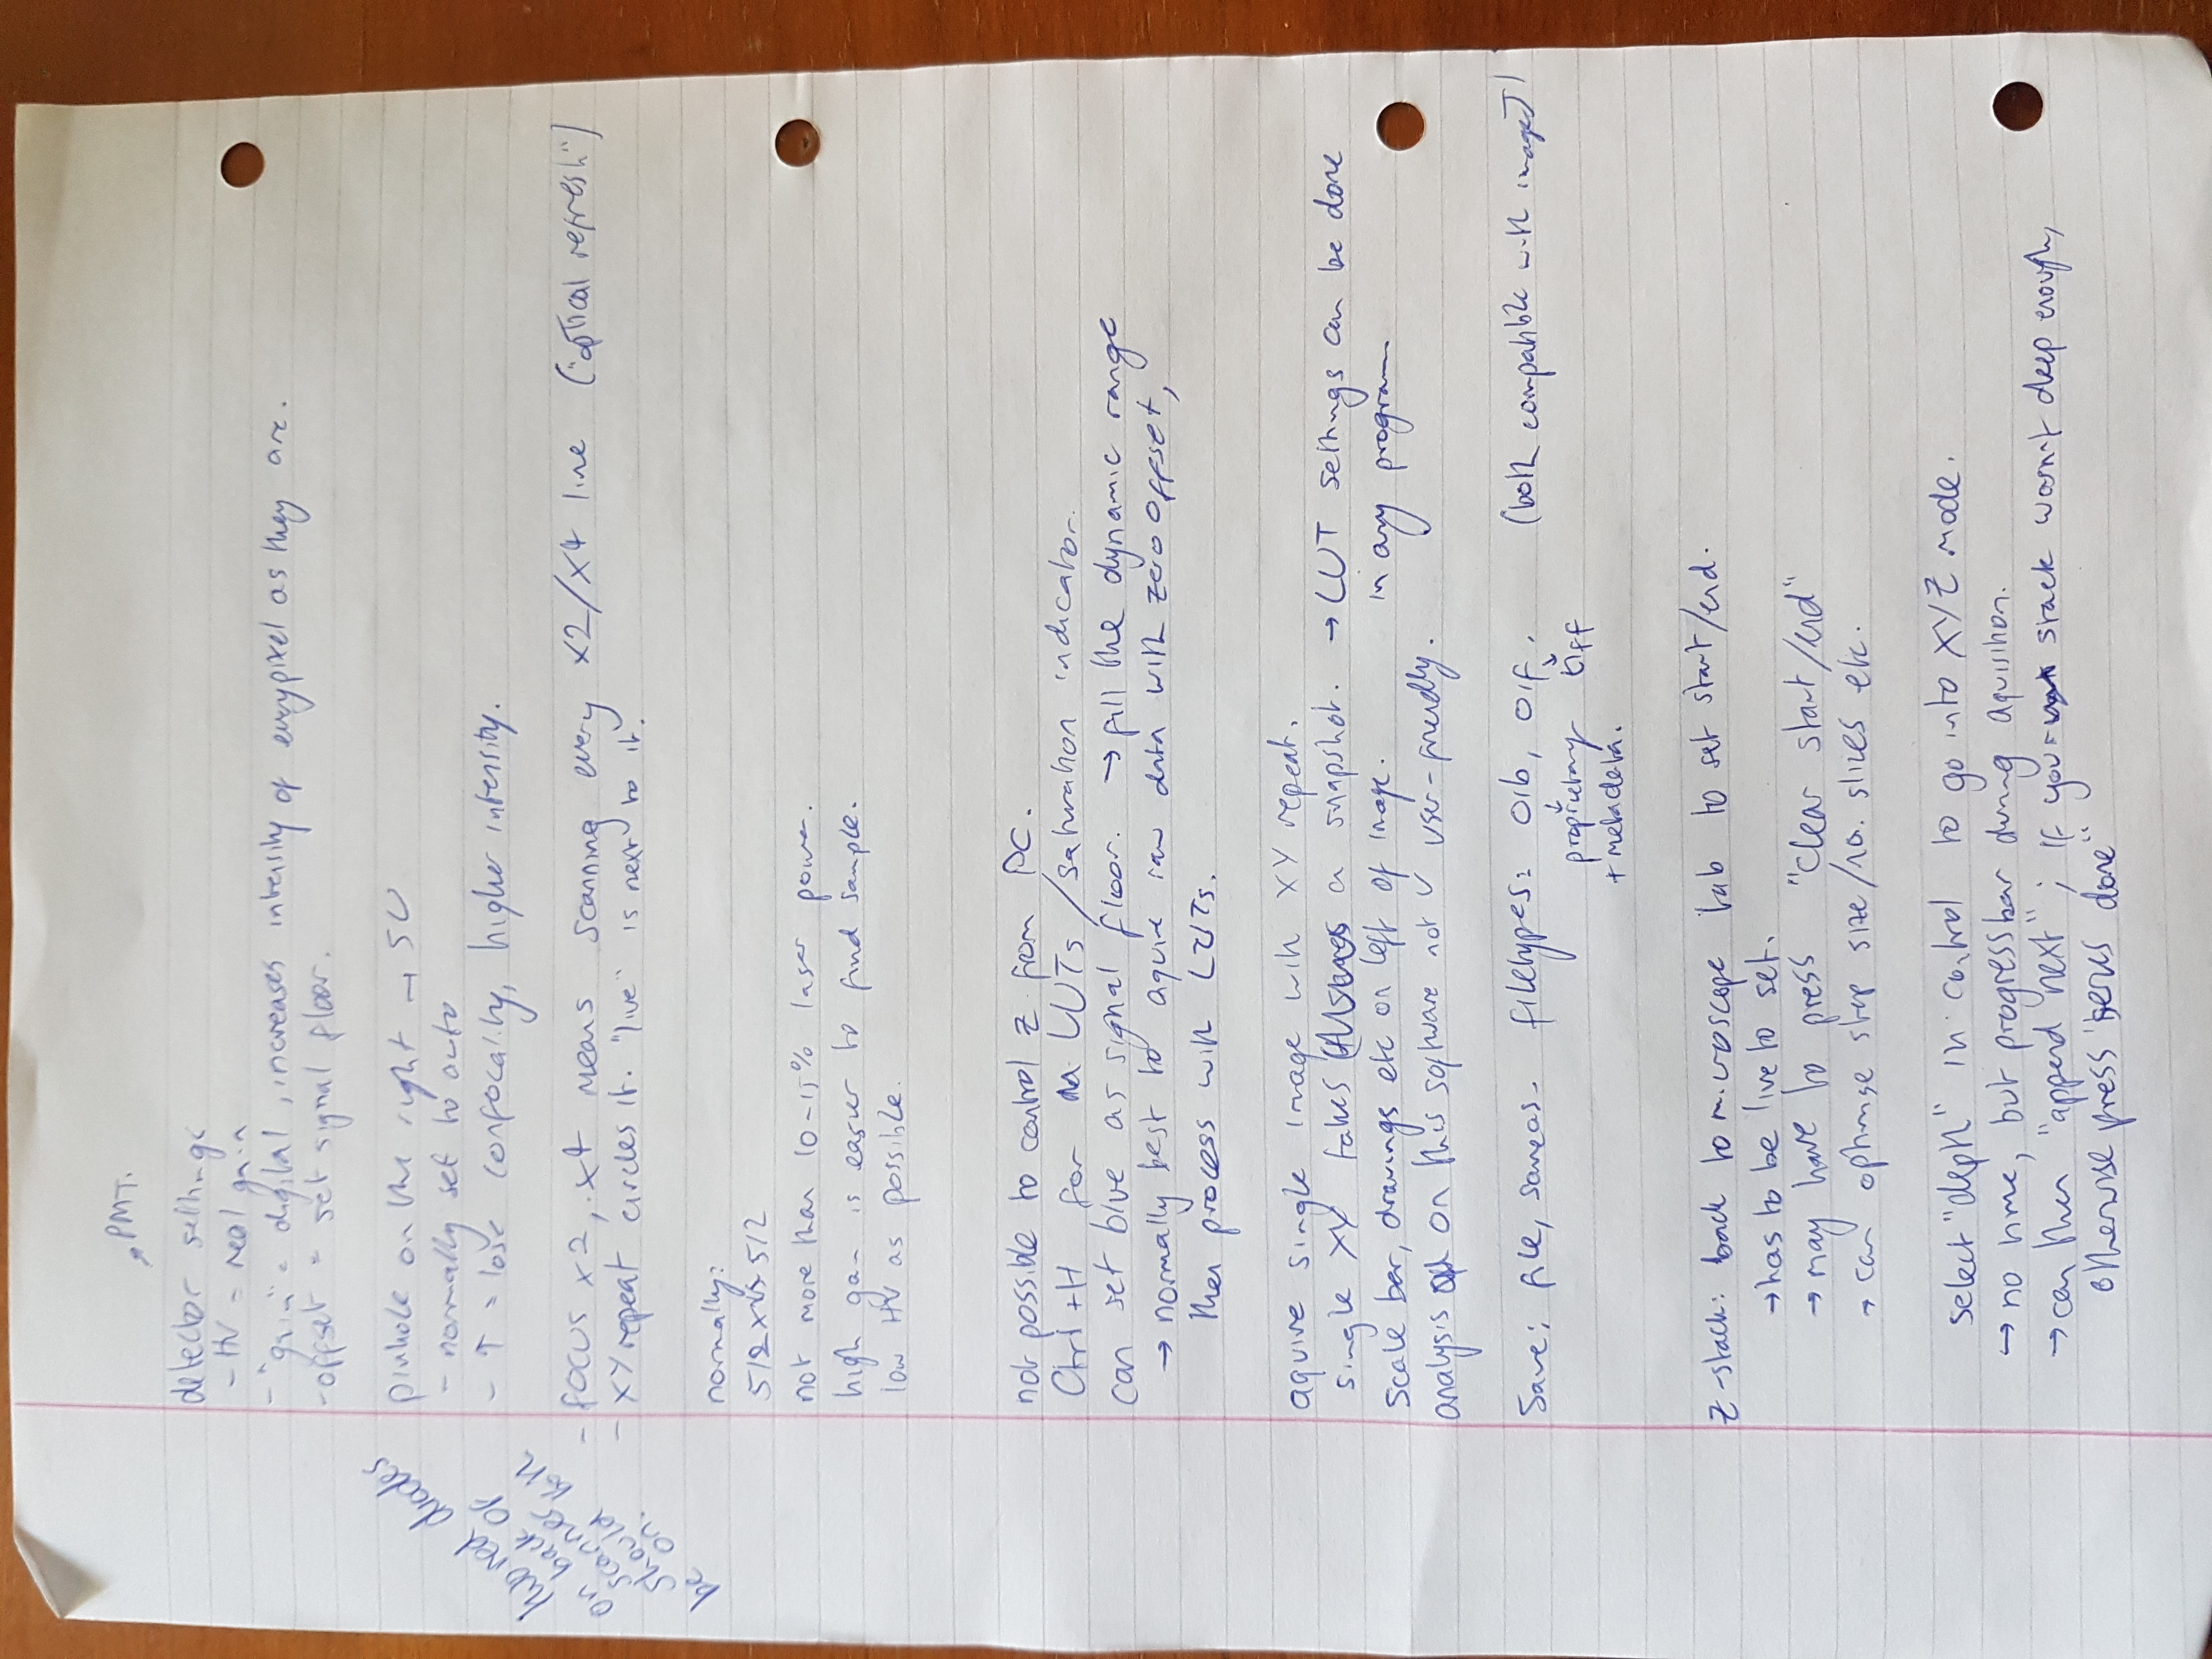 ↗ PMT.
detector settings
- HV = real gain
- "gain" = digital, increases intensity of every pixel as they are.
- offset = set signal floor.
pinhole on the right → SU
- normally set to auto
- ↑ = lose confocality, higher intensity.
two red diodes
on back of
scanner
should both
be on.
- focus x2, x4 means scanning every x2/x4 line ("optical refresh")
- XY repeat circles it. "live" is next to it.
normally:
512 x 512
not more than 10-15% laser power.
high gain is easier to find sample.
low HV as possible.
not possible to control z from PC.
Ctrl+H for LUTs/saturation indicator.
can set blue as signal floor. → fill the dynamic range
→ normally best to aquire raw data with zero offset,
then process with LUTs.
aquire single image with XY repeat.
single XY takes a snapshot. → LUT settings can be done
in any program
scale bar, drawings etc on left of image.
analysis on this software not v user-friendly.
Save: file, saveas. filetypes: oib, oif. (both compatible with imageJ)
↓ proprietary ↘ tiff
+ metadata.
Z-stack: back to microscope tab to set start/end.
→ has to be live to set.
→ may have to press "clear start/end"
→ can optimise step size/no. slices etc.
select "depth" in control to go into XYZ mode.
→ no time, but progress bar during aquisition.
→ can then "append next"; if your stack wasn't deep enough,
otherwise press "series done"